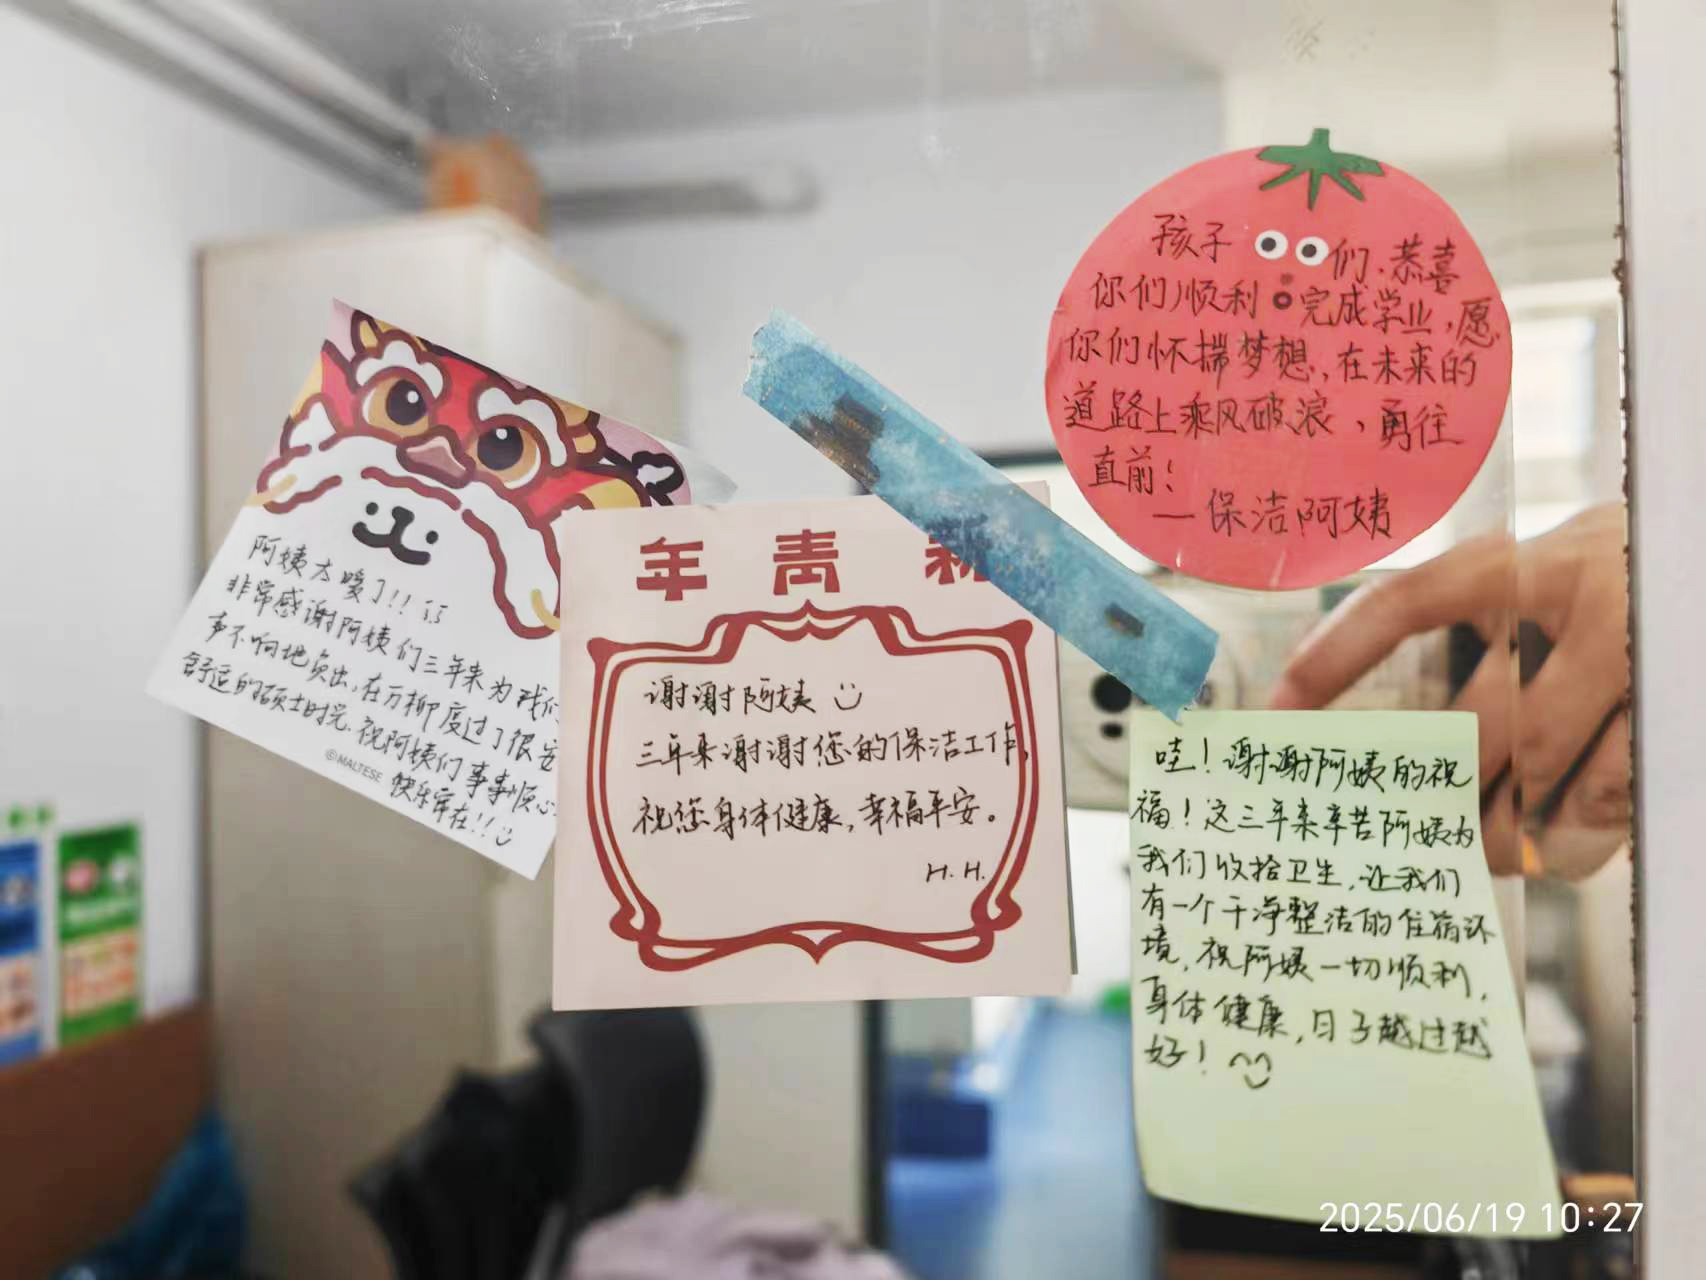 孩子们,恭喜
你们顺利完成学业,愿
你们怀揣梦想,在未来的
道路上乘风破浪,勇往
直前!
—保洁阿姨
阿姨太暖了!!
非常感谢阿姨们三年来为我们
声不响地负出,在万柳度过了很安
舒适的硕士时光.祝阿姨们事事顺心
快乐牢在!!
©MALTESE
年青新
谢谢阿姨
三年来谢谢您的保洁工作,
祝您身体健康,幸福平安。
H.H.
哇!谢谢阿姨的祝
福!这三年来辛苦阿姨为
我们收拾卫生,让我们
有一个干净整洁的住宿环
境,祝阿姨一切顺利,
身体健康,日子越过越
好!
2025/06/19 10:27